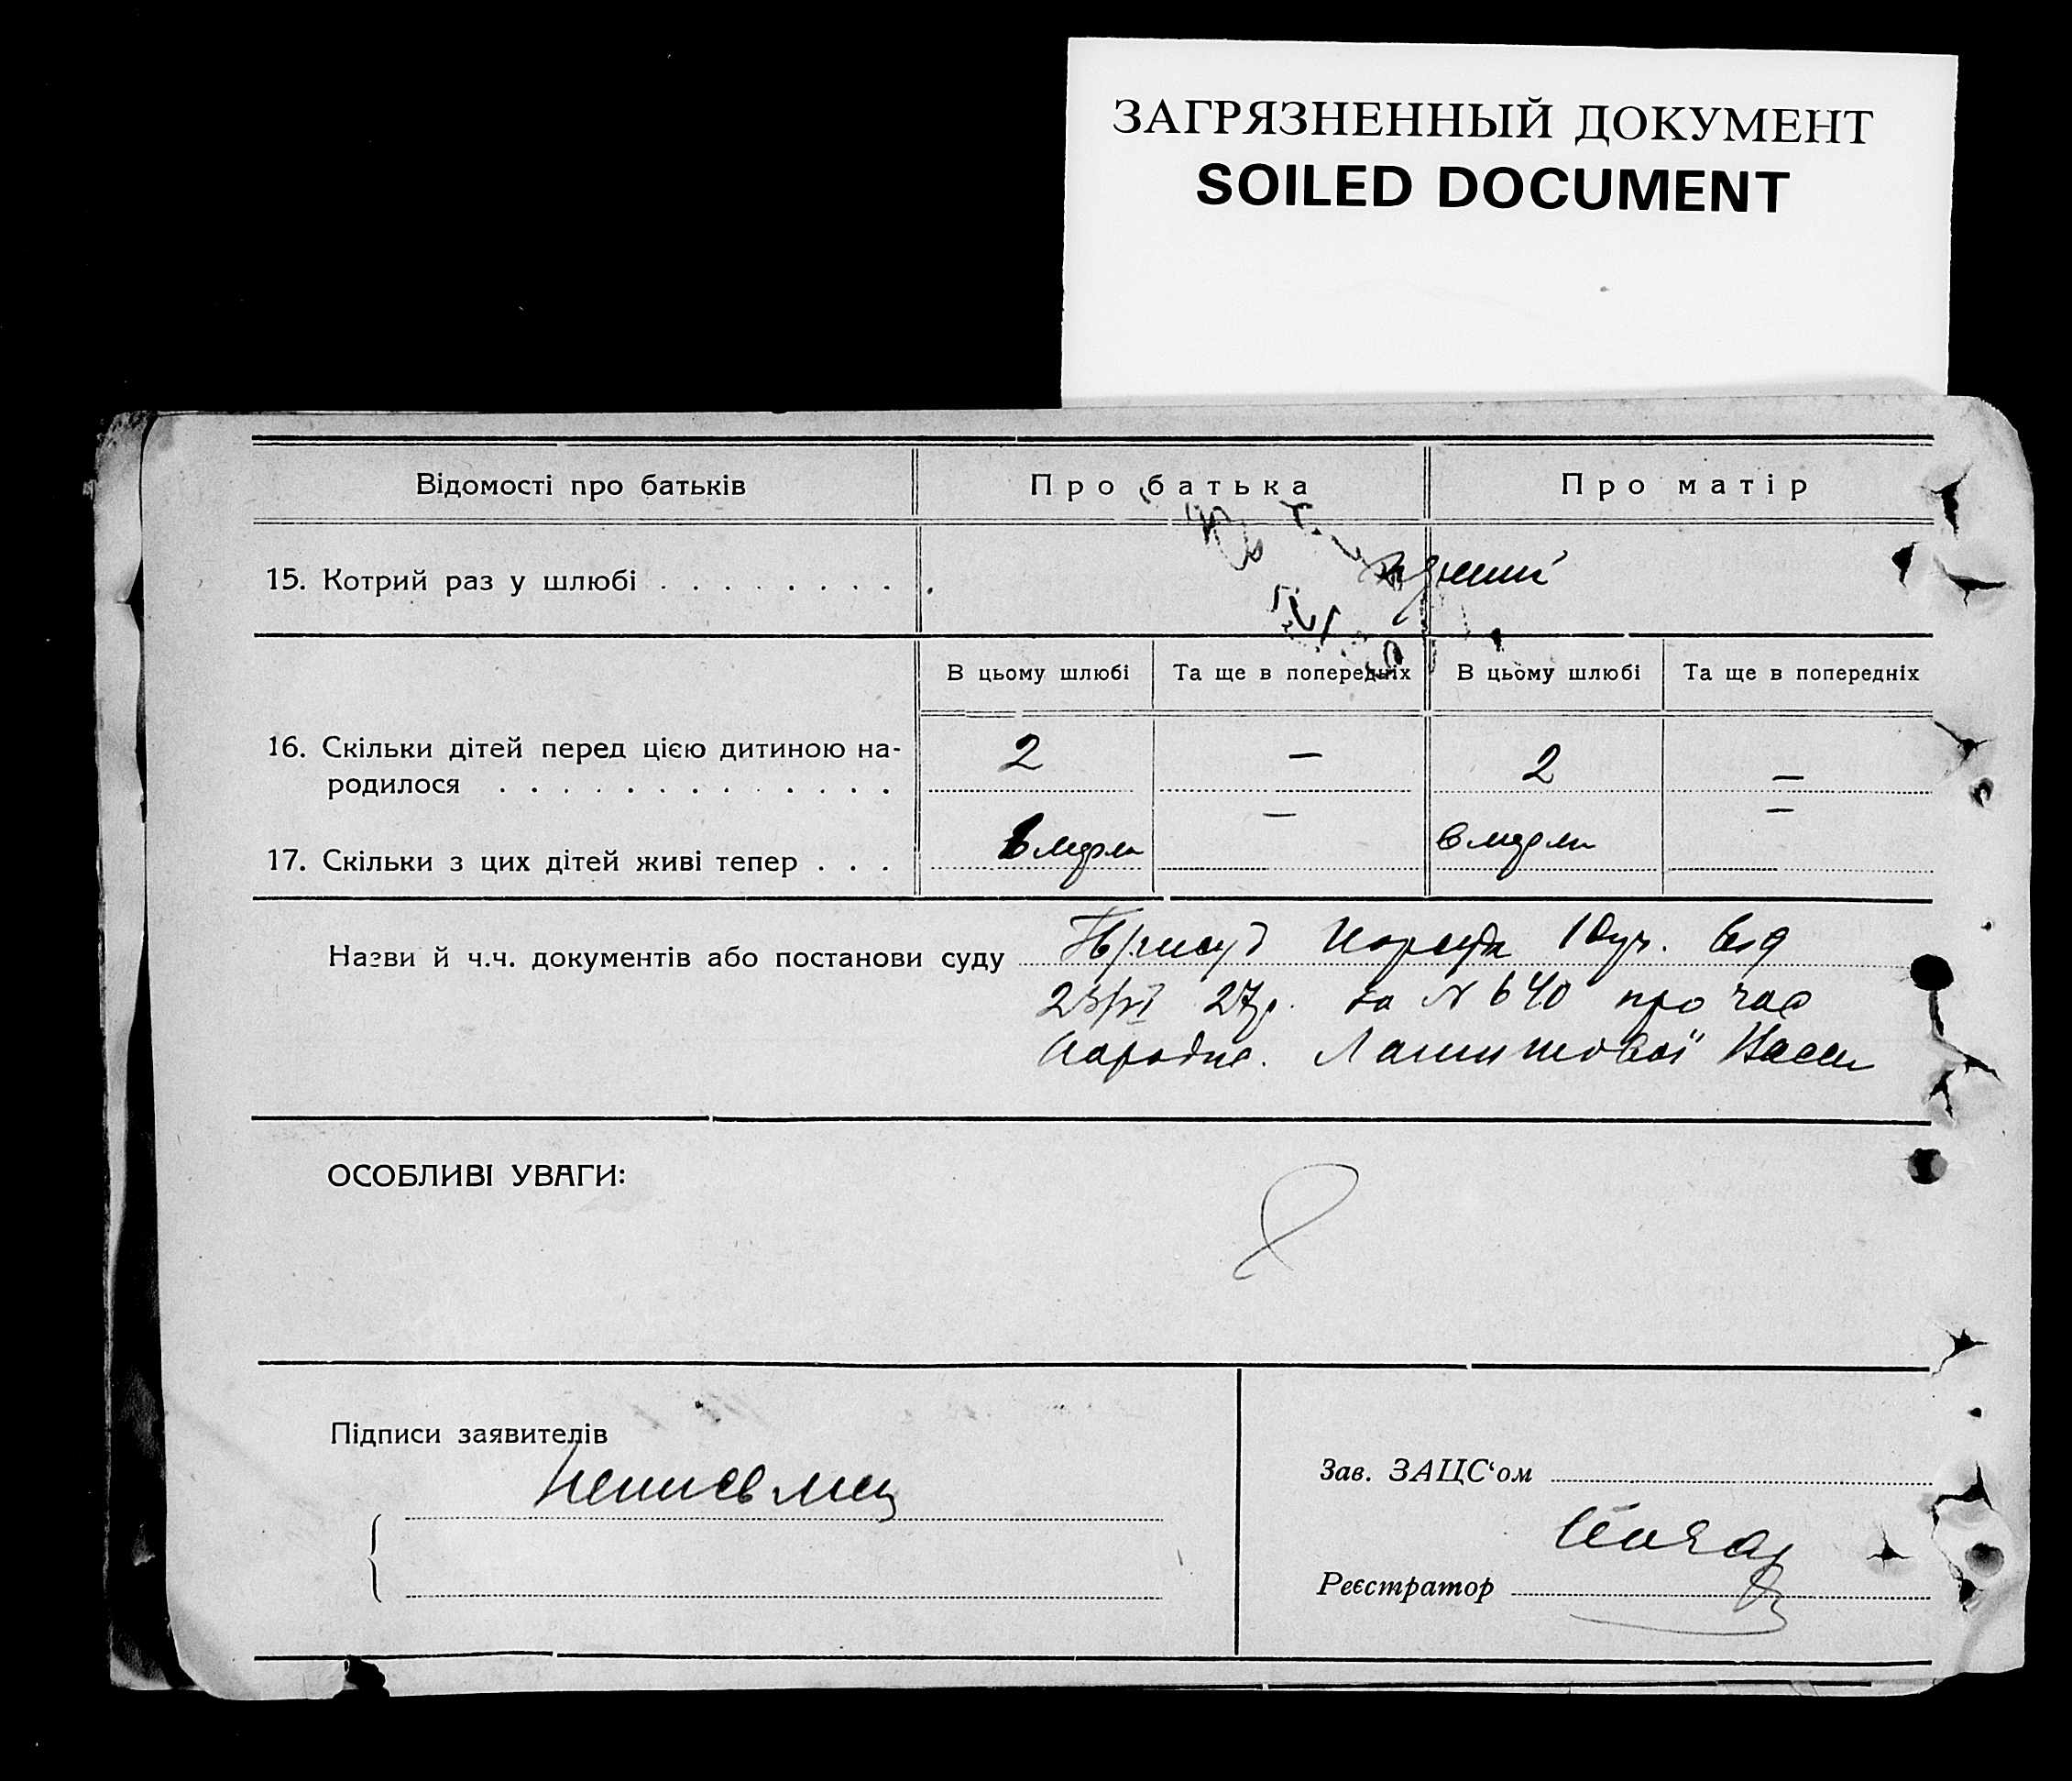 ЗАГРЯЗНЕННЫЙ ДОКУМЕНТ
SOILED DOCUMENT
Відомості про батьків
Про батька
Про матір
15. Котрий раз у шлюбі . . . . . . . . .
В цьому шлюбі
Та ще в попередніх
В цьому шлюбі
Та ще в попередніх
16. Скільки дітей перед цією дитиною на-
родилося . . . . . . . . . . . . .
2
—
2
—
17. Скільки з цих дітей живі тепер . . .
вмерли
—
вмерли
—
Назви й ч.ч. документів або постанови суду
Присуд Нарсуда 1 Оуч. від
23/VI 27р. за № 640 про час
народж.
ОСОБЛИВІ УВАГИ:
Підписи заявителів
неписьмен
Зав. ЗАЦС‘ом
Реєстратор